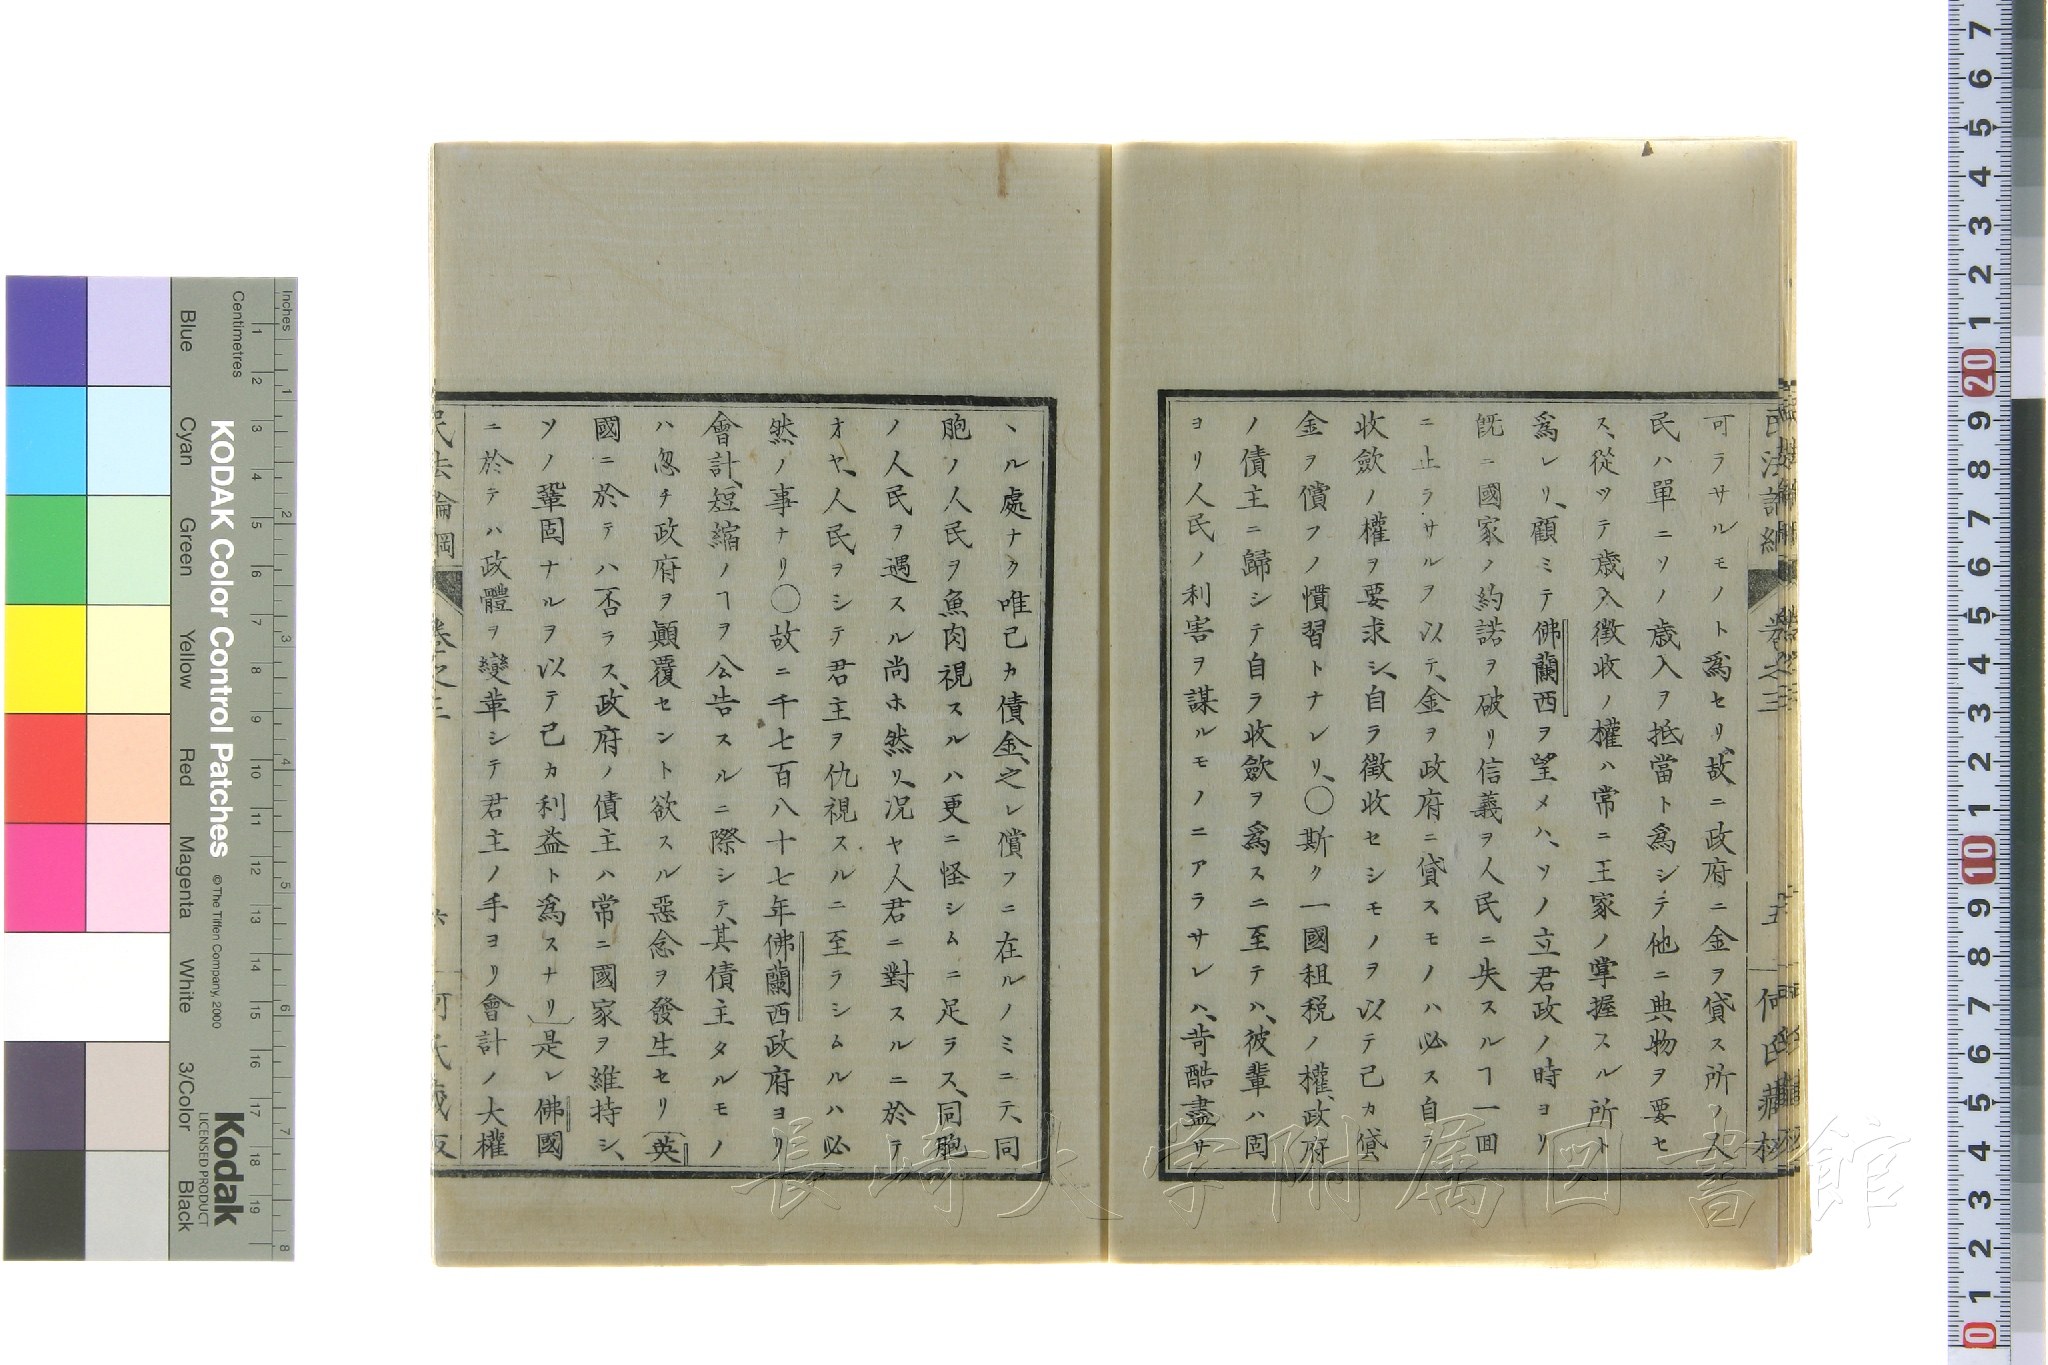 可ラサルモノト為セリ、故ニ政府ニ金ヲ貸ス所ノ人
民ハ單ニソノ歳入ヲ抵當ト為シテ他ニ典物ヲ要セ
ス、從ツテ歳入徴收ノ權ハ常ニ王家ノ掌握スル所ト
為レリ、顧ミテ佛蘭西ヲ望メハ、ソノ立君政ノ時ヨリ
旣ニ國家ノ約諾ヲ破リ信義ヲ人民ニ失スルヿ一回
ニ止ラサルヲ以テ、金ヲ政府ニ貸スモノハ必ス自ラ
收斂ノ權ヲ要求シ、自ラ徴收セシモノヲ以テ己カ貸
金ヲ償フノ慣習トナレリ、〇斯ク一國租税ノ權、政府
ノ債主ニ歸シテ自ラ收斂ヲ為スニ至テハ、彼輩ハ固
ヨリ人民ノ利害ヲ謀ルモノニアラサレハ、苛酷盡サ
民法論綱
卷之三
五
何氏藏板
ヽル處ナク唯己カ債金、之レ償フニ在ルノミニテ、同
胞ノ人民ヲ魚肉視スルハ更ニ怪シムニ足ラス、同胞
ノ人民ヲ遇スル尚ホ然リ、況ヤ人君ニ對スルニ於テ
オヤ、人民ヲシテ君主ヲ仇視スルニ至ラシムルハ必
然ノ事ナリ〇故ニ千七百八十七年佛蘭西政府ヨリ
會計、短縮ノヿヲ公告スルニ際シテ、其債主タルモノ
ハ忽チ政府ヲ顚覆セント欲スル惡念ヲ發生セリ〔英
國ニ於テハ否ラス、政府ノ債主ハ常ニ國家ヲ維持シ、
ソノ鞏固ナルヲ以テ己カ利益ト為スナリ〕是レ佛國
ニ於テハ政體ヲ變革シテ君主ノ手ヨリ會計ノ大權
民法論綱
卷之三
六
何氏藏板
長崎大学附属図書館
KODAK Color Control Patches
©The Tiffen Company, 2000
Kodak
LICENSED PRODUCT
Inches
Centimetres
Blue
Cyan
Green
Yellow
Red
Magenta
White
3/Color
Black